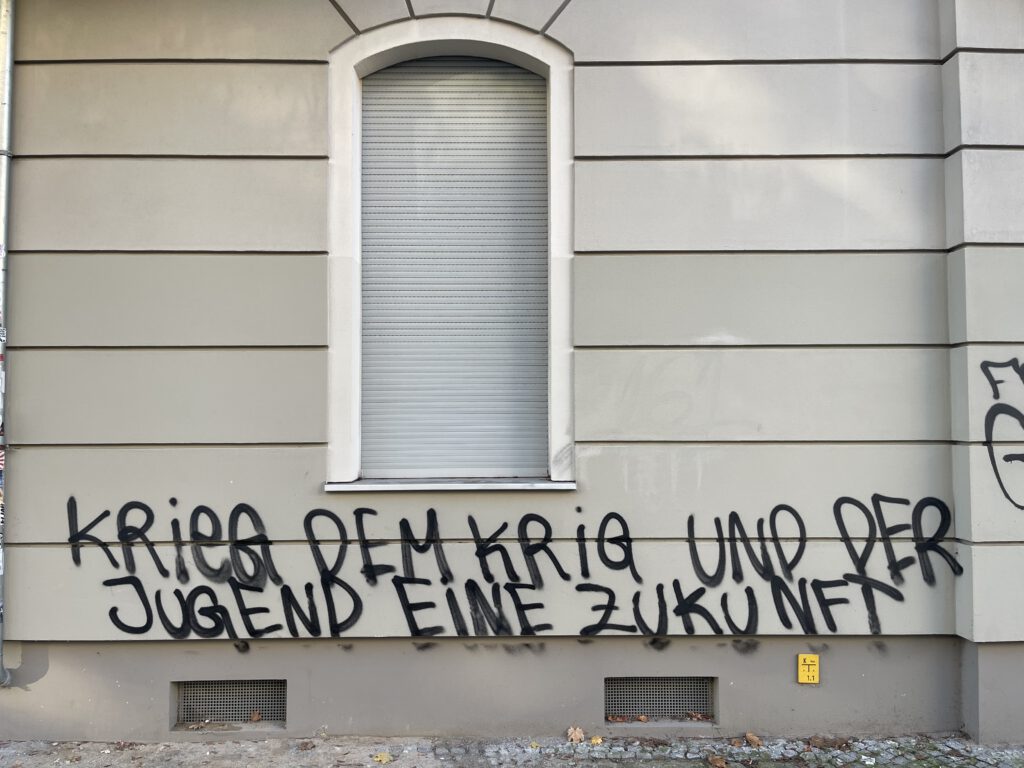 KRiEG DEM KRiG UND DER
JUGEND EiNE ZUKUNFT
X
1.1